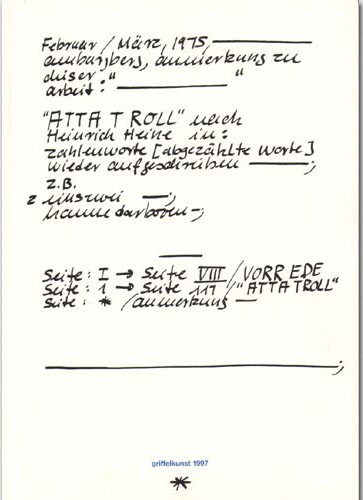 Februar / März, 1975,
am burgberg, anmerkung zu
dieser: "    "
arbeit:
"ATTA TROLL" nach
Heinrich Heine in:
zahlenworte [abgezählte worte]
wieder aufgeschrieben —;
z.B.
2 einszwei —;
hanne darboven —;
Seite: I → Seite VIII / VORREDE
Seite: 1 → Seite 117 / "ATTA TROLL"
Seite: * / anmerkung —
griffelkunst 1997
*